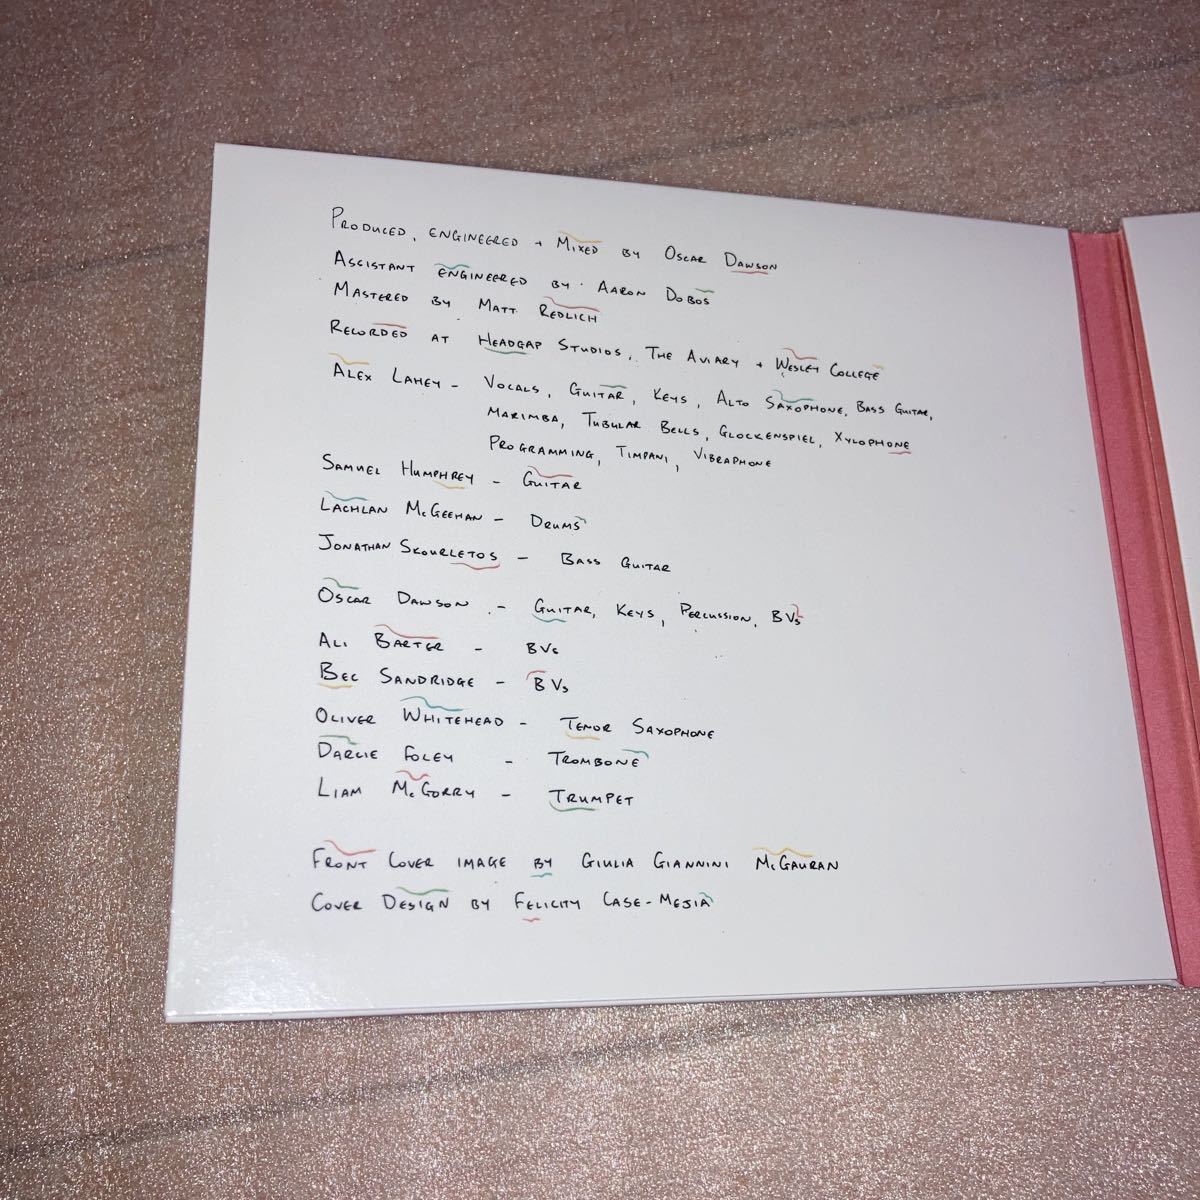 PRODUCED, ENGINEERED + MIXED BY OSCAR DAWSON
ASSISTANT ENGINEERED BY AARON DOBOS
MASTERED BY MATT REDLICH
RECORDED AT HEADGAP STUDIOS, THE AVIARY + WESLEY COLLEGE
ALEX LAHEY - VOCALS, GUITAR, KEYS, ALTO SAXOPHONE, BASS GUITAR,
MARIMBA, TUBULAR BELLS, GLOCKENSPIEL, XYLOPHONE
PROGRAMMING, TIMPANI, VIBRAPHONE
SAMUEL HUMPHREY - GUITAR
LACHLAN McGEEHAN - DRUMS
JONATHAN SKOURLETOS - BASS GUITAR
OSCAR DAWSON - GUITAR, KEYS, PERCUSSION, BVs
ALI BARTER - BVs
BEC SANDRIDGE - BVs
OLIVER WHITEHEAD - TENOR SAXOPHONE
DARCIE FOLEY - TROMBONE
LIAM McGORRY - TRUMPET
FRONT COVER IMAGE BY GIULIA GIANNINI McGAURAN
COVER DESIGN BY FELICITY CASE-MEJIA